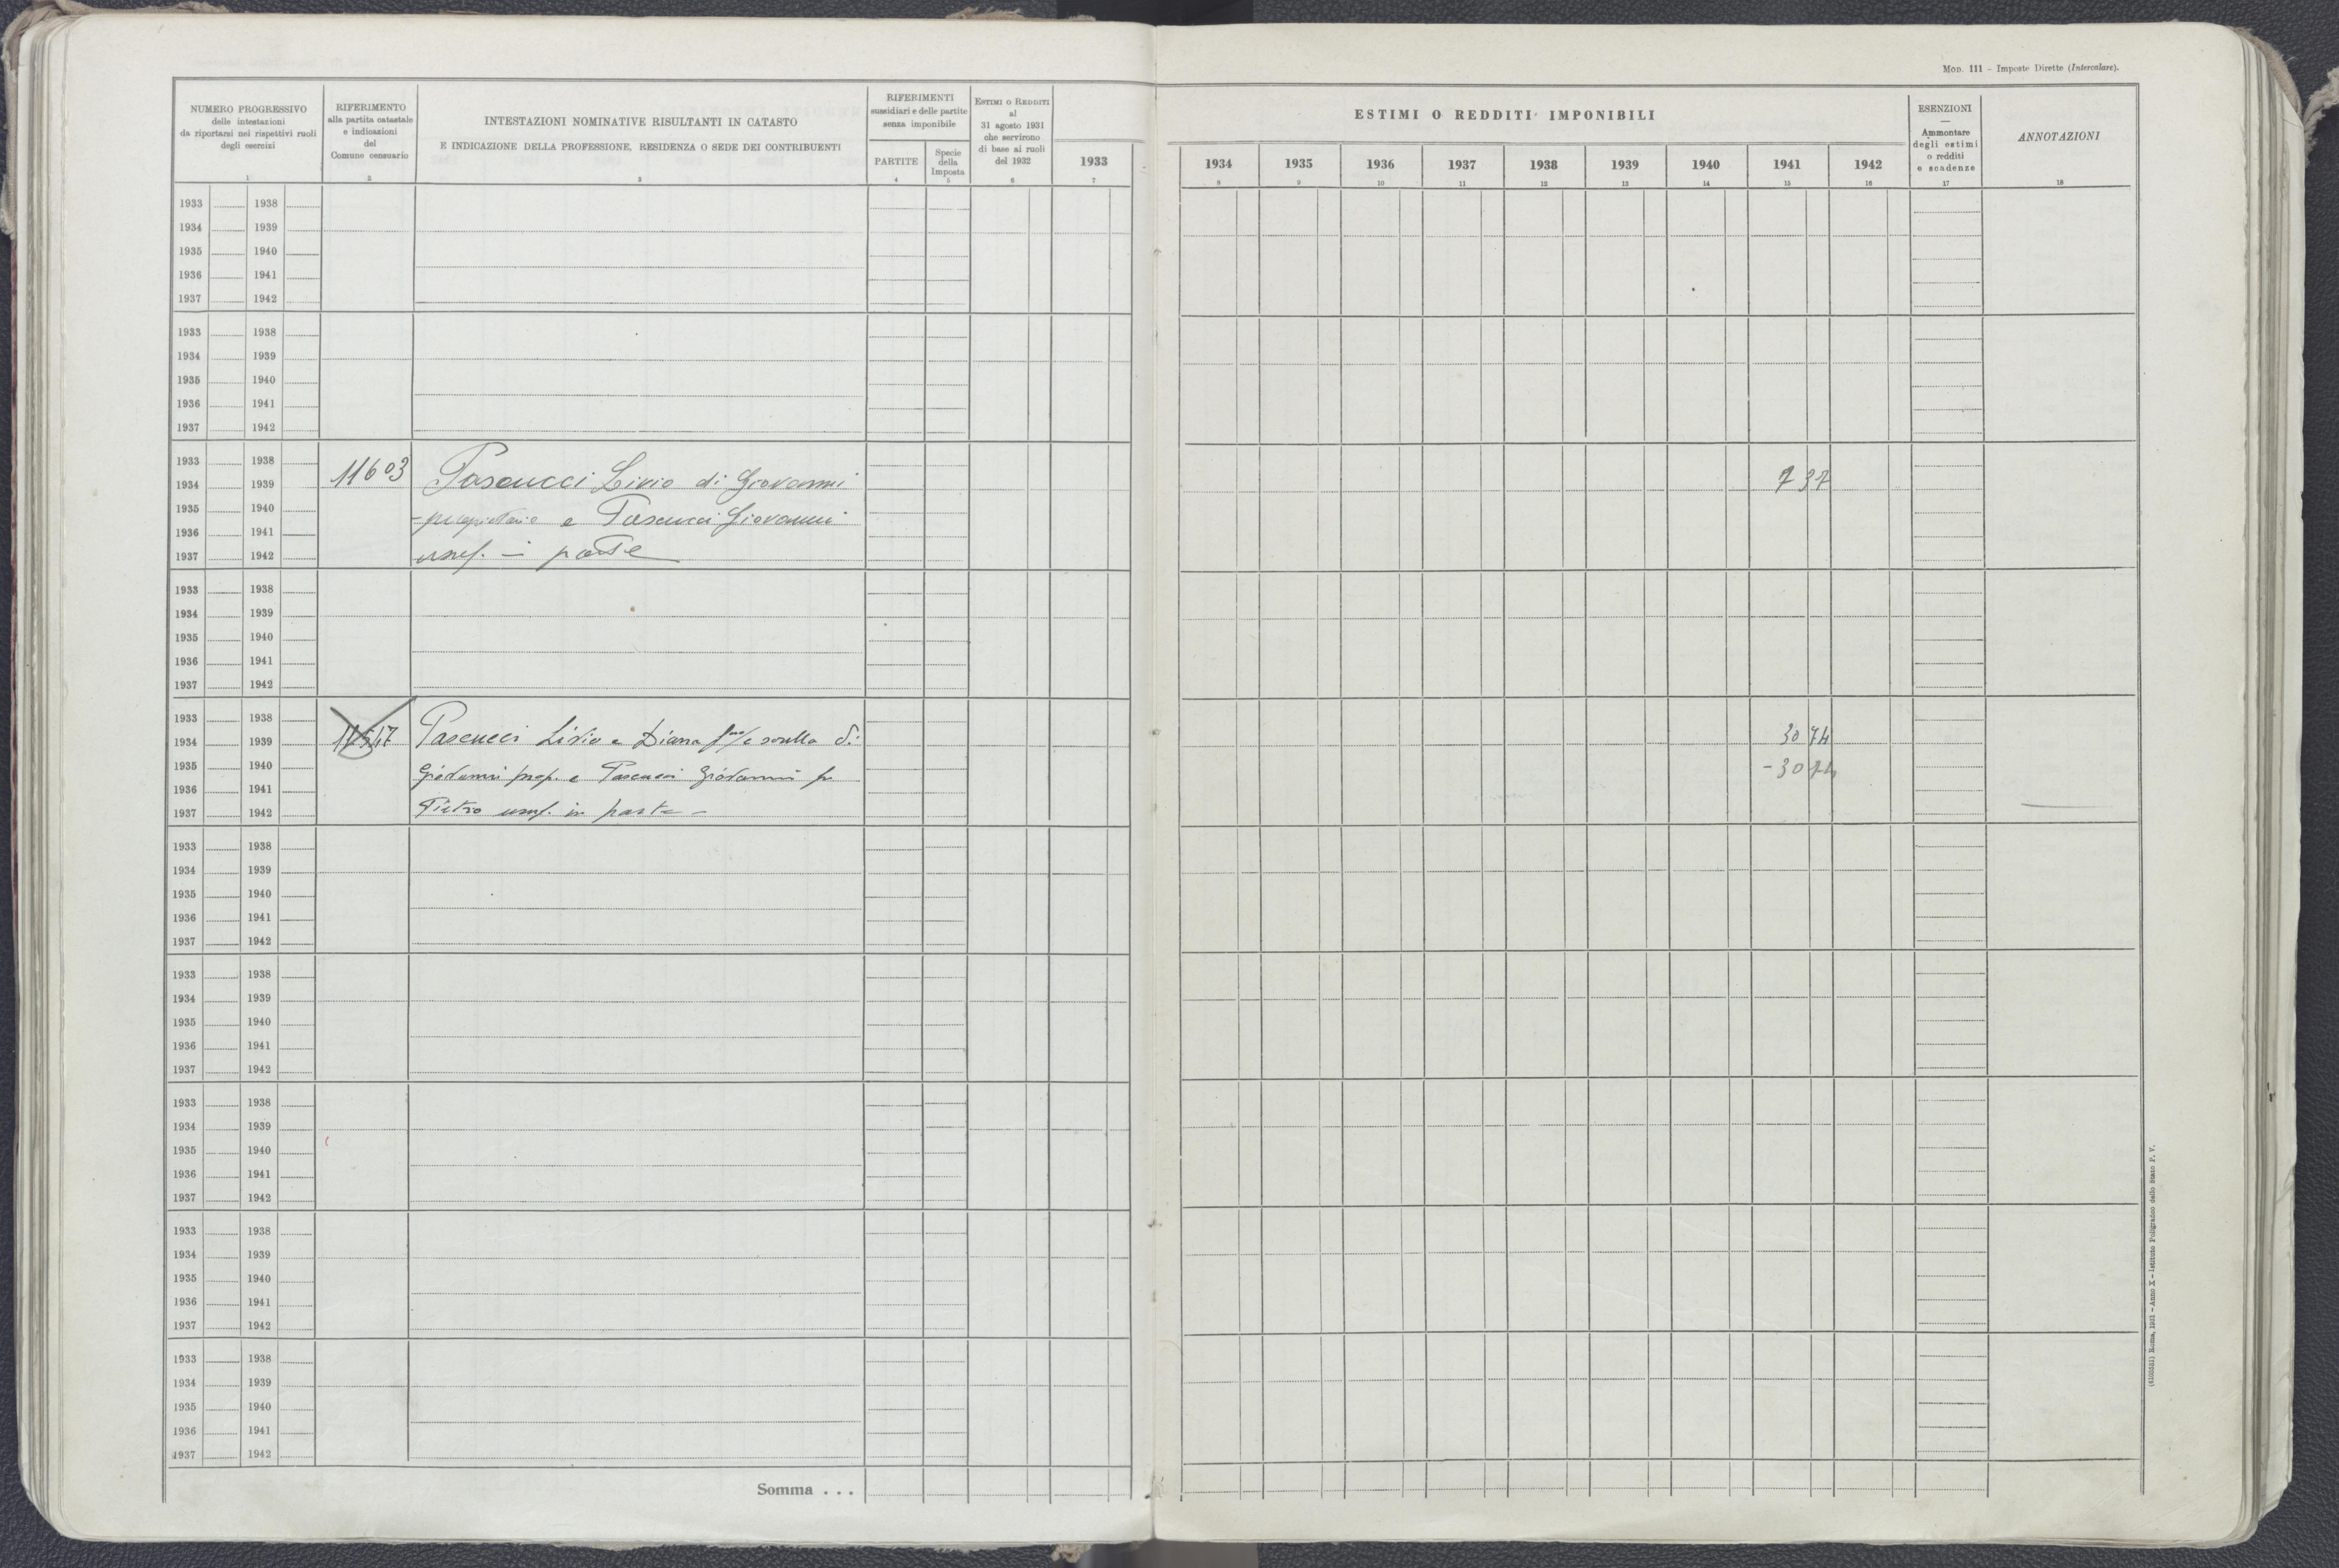 MOD. 111 – Imposte Dirette (Intercalare).
NUMERO PROGRESSIVO
delle intestazioni
da riportarsi nei rispettivi ruoli
degli esercizi
1
RIFERIMENTO
alla partita catastale
e indicazioni
del
Comune censuario
2
INTESTAZIONI NOMINATIVE RISULTANTI IN CATASTO
E INDICAZIONE DELLA PROFESSIONE, RESIDENZA O SEDE DEI CONTRIBUENTI
3
RIFERIMENTI
sussidiari e delle partite
senza imponibile
PARTITE
4
Specie
della
Imposta
5
ESTIMI O REDDITI
al
31 agosto 1931
che servirono
di base ai ruoli
del 1932
6
1933
7
ESTIMI O REDDITI IMPONIBILI
1934 1935 1936 1937 1938 1939 1940 1941 1942
8 9 10 11 12 13 14 15 16
ESENZIONI
—
Ammontare
degli estimi
o redditi
e scadenze
17
ANNOTAZIONI
18
1933 1938
1934 1939
1935 1940
1936 1941
1937 1942
1933 1938
1934 1939
1935 1940
1936 1941
1937 1942
1933 1938
1934 1939
1935 1940
1936 1941
1937 1942
11603
Pascucci Livio di Giovanni
proprietario e Pascucci Giovanni
usuf. in parte
737
1933 1938
1934 1939
1935 1940
1936 1941
1937 1942
1933 1938
1934 1939
1935 1940
1936 1941
1937 1942
Pascucci Livio e Diana f.llo e sorella di
Giovanni prop. e Pascucci Giovanni fu
Pietro usuf. in parte –
30 74
- 30 74
1933 1938
1934 1939
1935 1940
1936 1941
1937 1942
1933 1938
1934 1939
1935 1940
1936 1941
1937 1942
1933 1938
1934 1939
1935 1940
1936 1941
1937 1942
1933 1938
1934 1939
1935 1940
1936 1941
1937 1942
1933 1938
1934 1939
1935 1940
1936 1941
1937 1942
Somma . . .
Roma, 1931 – Anno X – Istituto Poligrafico dello Stato P. V.